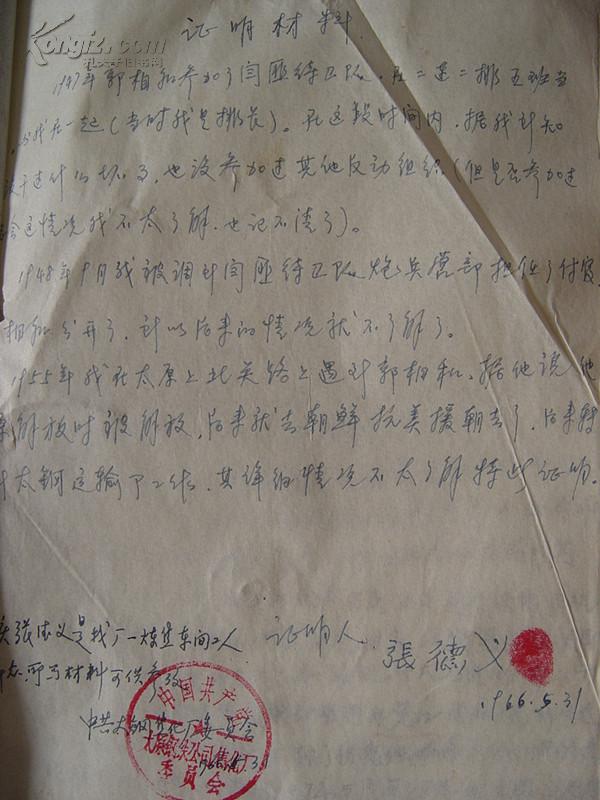 证明材料
1947年郭相和参加了闫匪待卫队，在二连二排五班当
，与我在一起（当时我是排长）。在这段时间内，据我所知
没干过什么坏事，也没参加过其他反动组织（但是否参加过
会这情况我不太了解，也记不清了）。
1948年9月我被调到闫匪待卫队炮兵营部担任了付官
相和分开了，所以后来的情况就不了解了。
1955年我在太原上北关路上遇到郭相和，据他说他
解放时被解放，后来就去朝鲜抗美援朝去了，后来转
太钢运输部工作，其详细情况不太了解特此证明。
证明人 張德义
1966.5.31
张德义是我厂一炼焦车间工人
所写材料可供参改
中共太钢焦化厂委员会
中国共产党
太原钢铁公司焦化厂
委员会